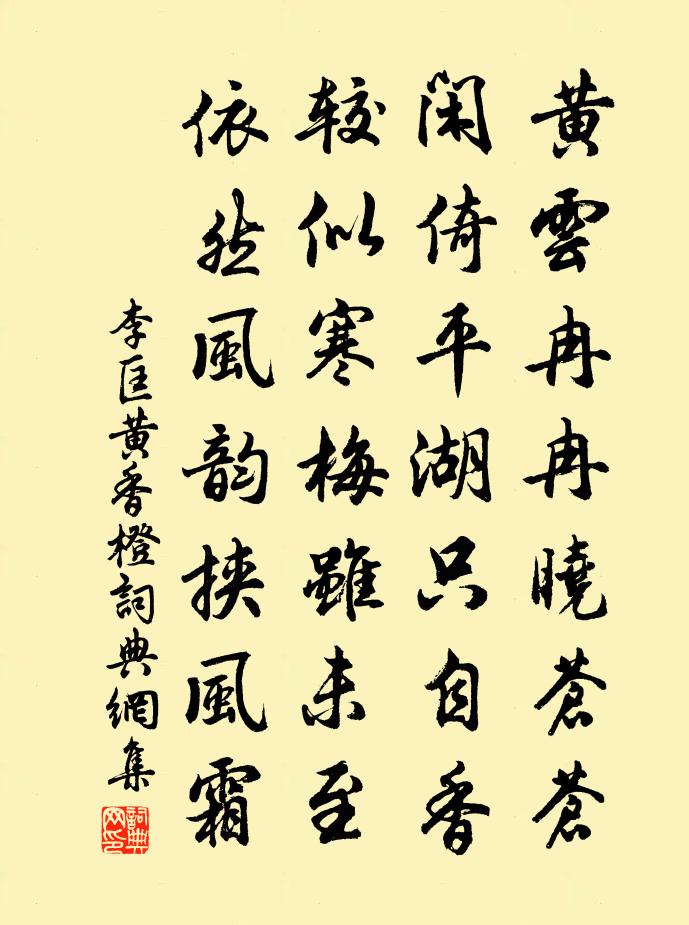 黄雲冉冉曉蒼蒼
閑倚平湖只自香
较似寒梅雖未至
依然風韵挾風霜
李匡黄香橙詞典網集
詞典网印